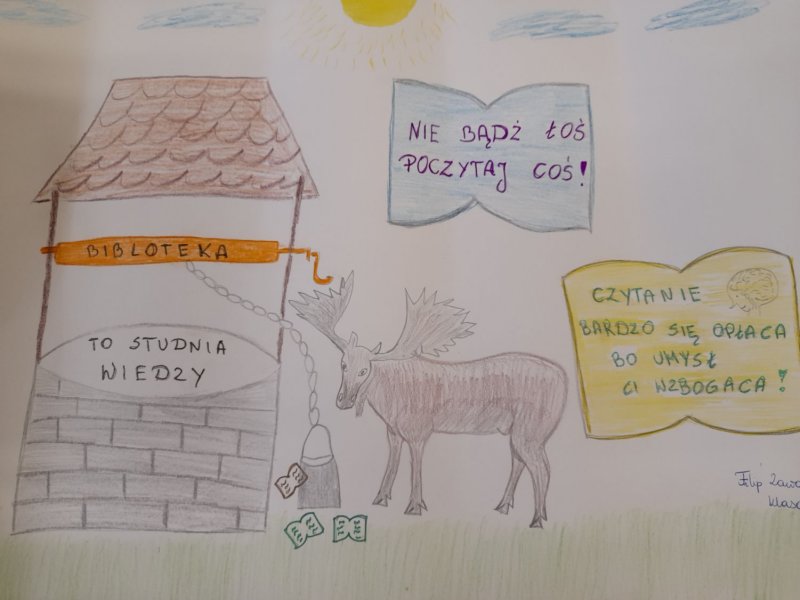 NIE BĄDŹ ŁOŚ
POCZYTAJ COŚ!
BIBLOTEKA
TO STUDNIA
WIEDZY
CZYTANIE
BARDZO SIĘ OPŁACA
BO UMYSŁ
CI WZBOGACA!
Filip